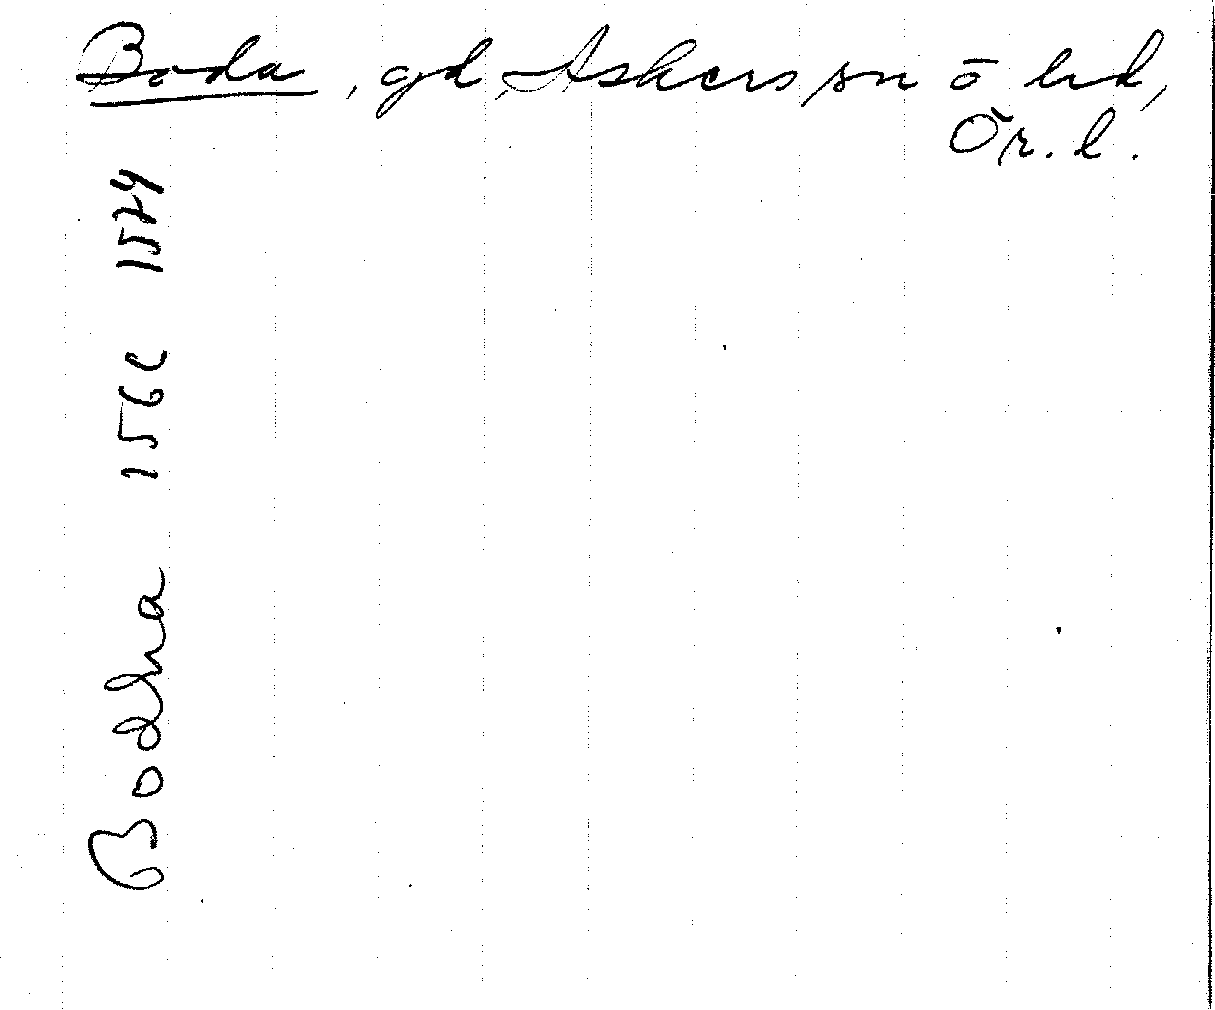 Boda, gd, Askers sn ō hd,
Ör. l.
Bodha 1566 1579